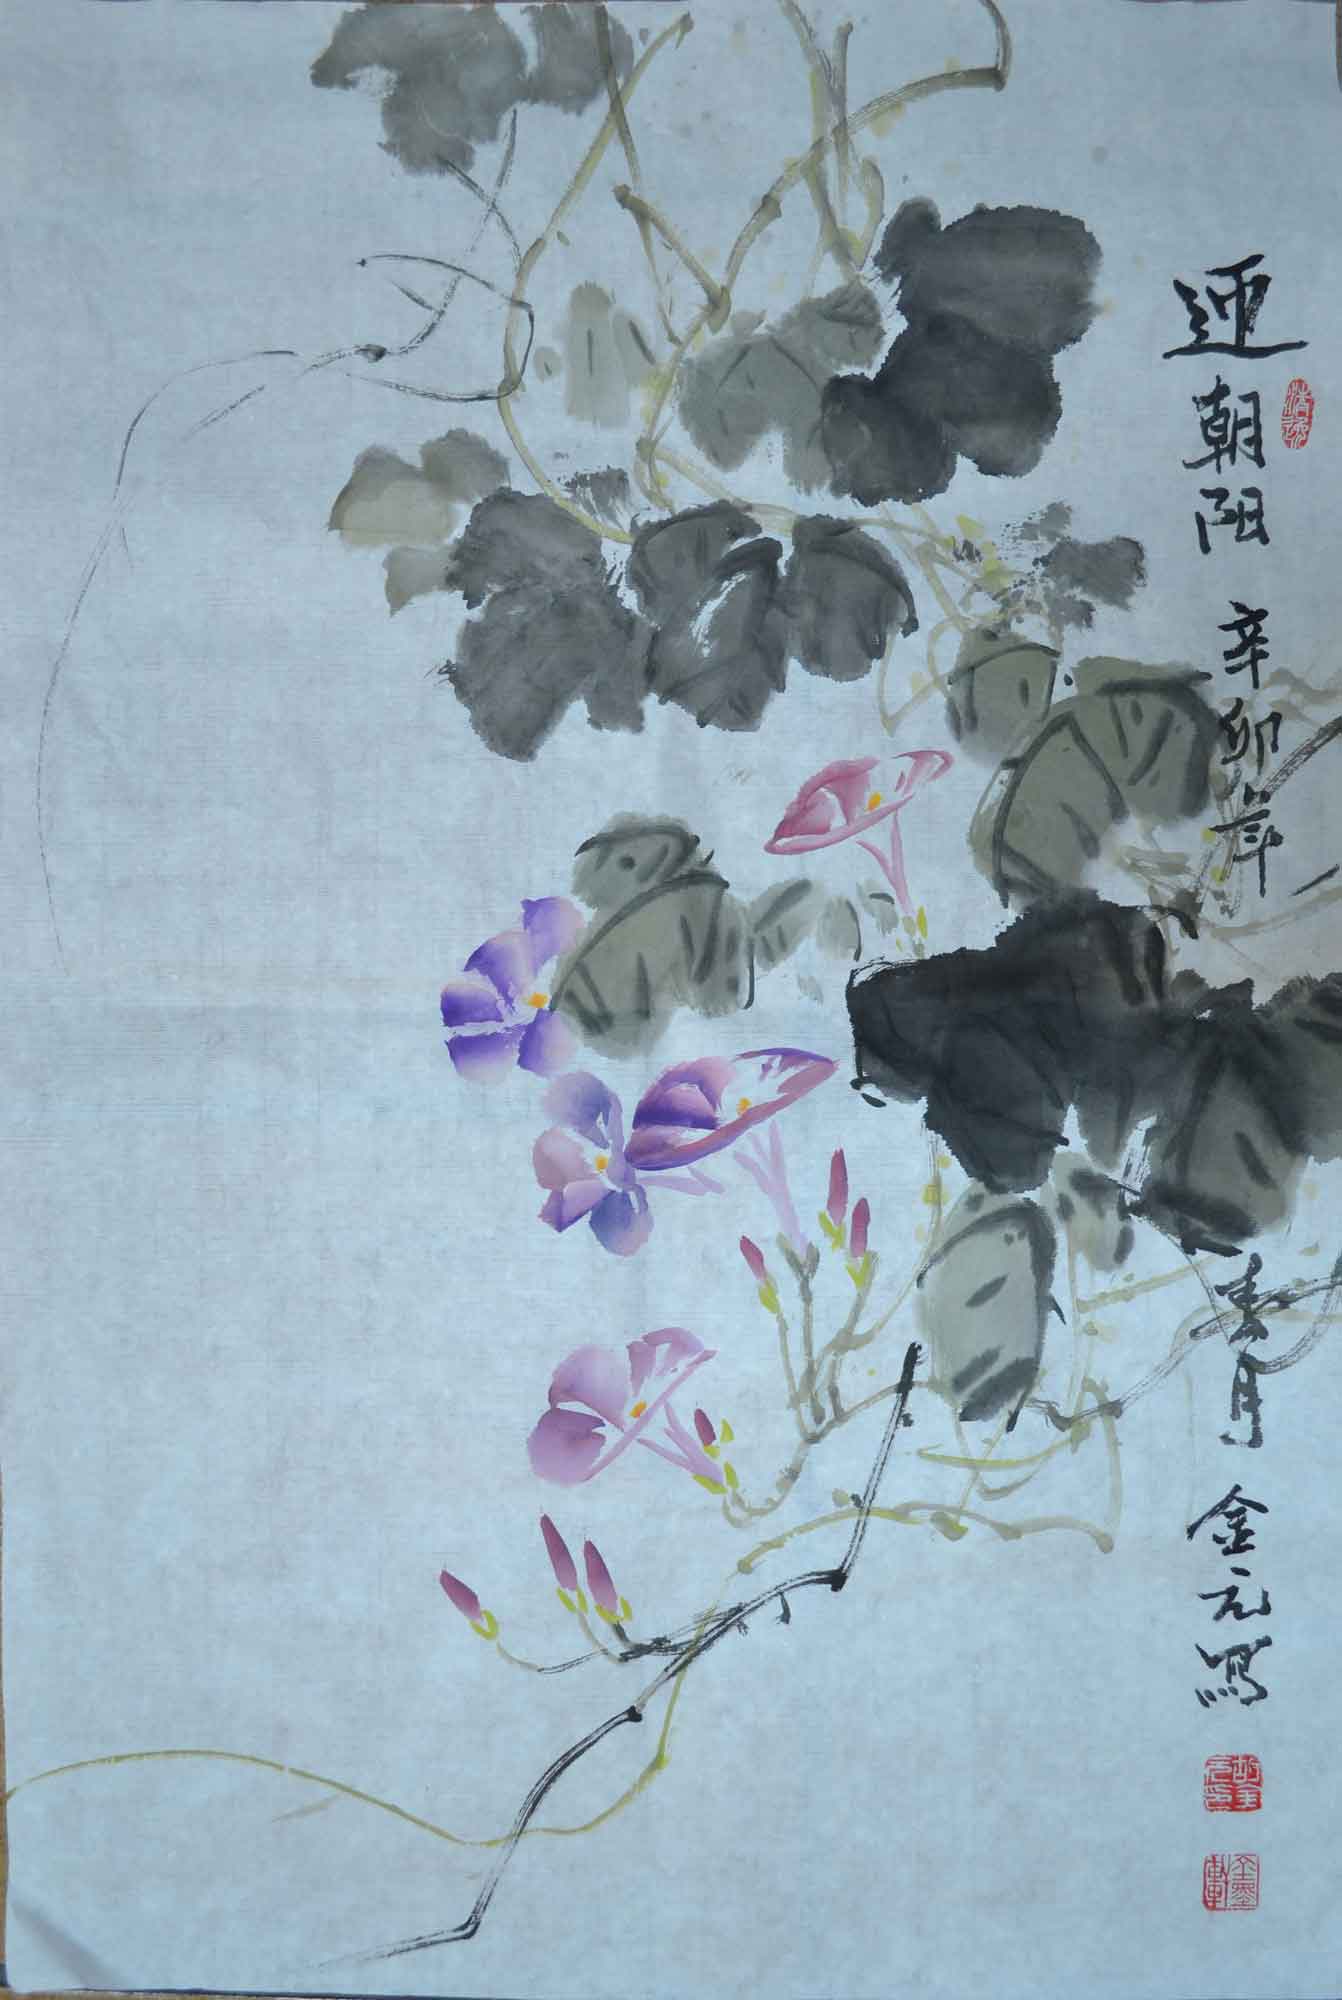 迎朝阳 辛卯年 春月 金元写